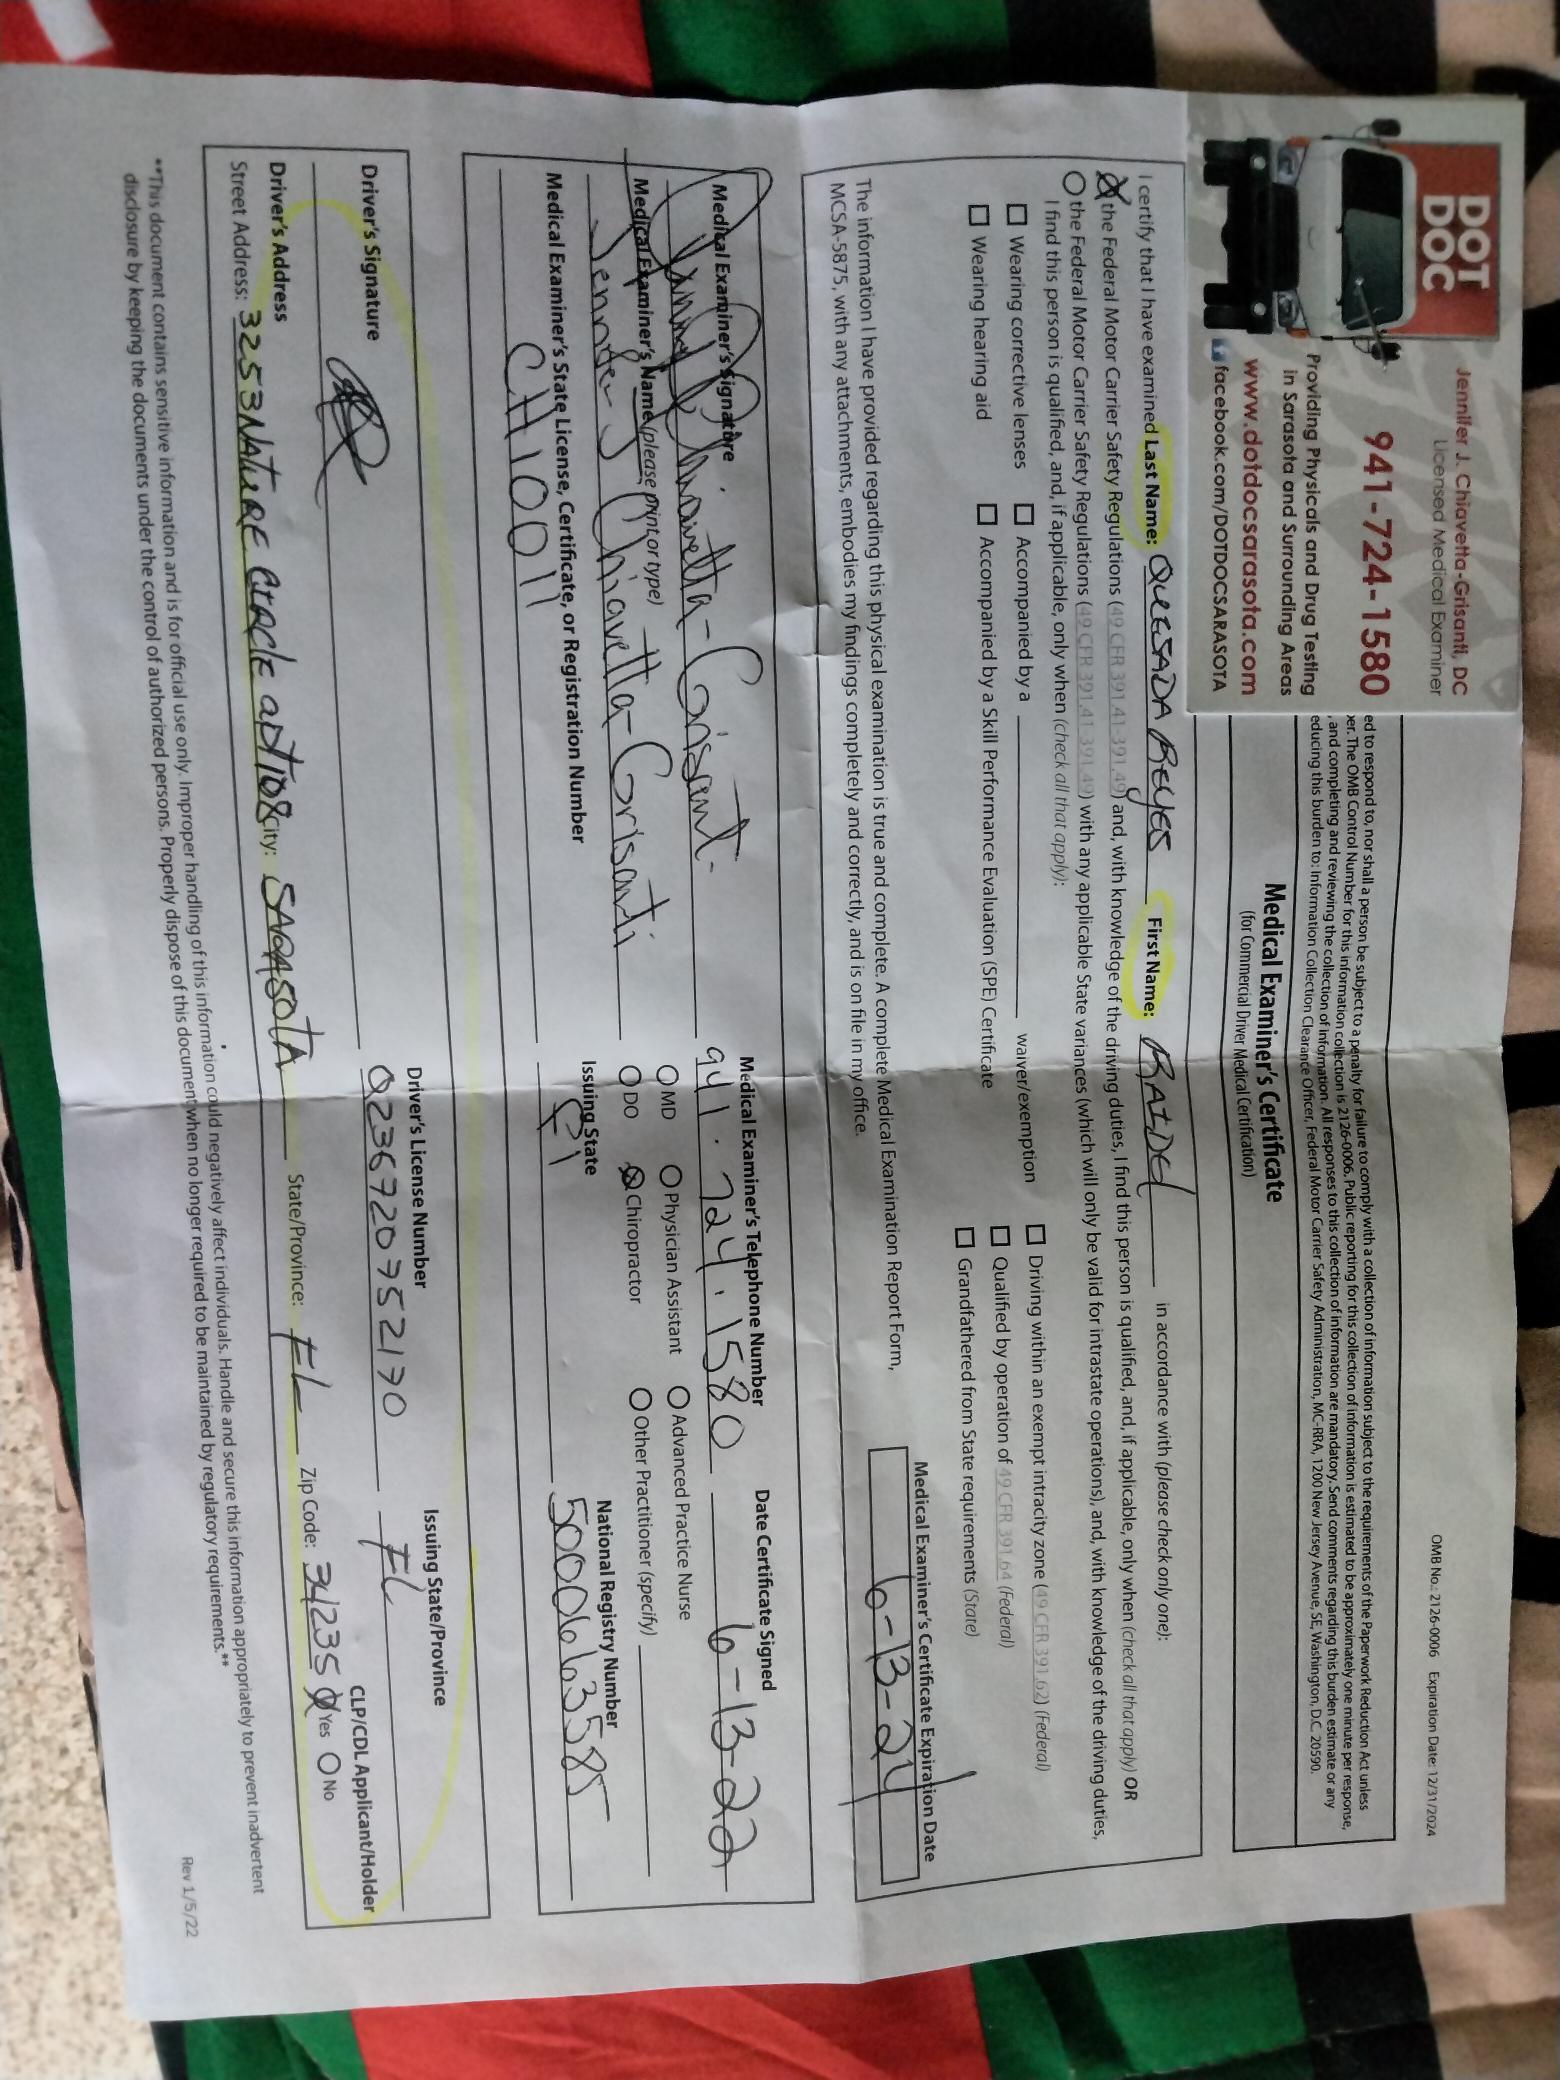 DOT
DOC
Jennifer J. Chiavetta-Grisanti, DC
Licensed Medical Examiner
941-724-1580
Providing Physicals and Drug Testing
in Sarasota and Surrounding Areas
www.dotdocsarasota.com
facebook.com/DOTDOCSARASOTA
OMB No.: 2126-0006 Expiration Date: 12/31/2024
ed to respond to, nor shall a person be subject to a penalty for failure to comply with a collection of information subject to the requirements of the Paperwork Reduction Act unless
er. The OMB Control Number for this information collection is 2126-0006. Public reporting for this collection of information is estimated to be approximately one minute per response,
, and completing and reviewing the collection of information. All responses to this collection of information are mandatory. Send comments regarding this burden estimate or any
educing this burden to: Information Collection Clearance Officer, Federal Motor Carrier Safety Administration, MC-RRA, 1200 New Jersey Avenue, SE, Washington, D.C. 20590.
Medical Examiner's Certificate
(for Commercial Driver Medical Certification)
I certify that I have examined Last Name: QUESADA REYES First Name: RAIDEL in accordance with (please check only one):
the Federal Motor Carrier Safety Regulations (49 CFR 391.41-391.49) and, with knowledge of the driving duties, I find this person is qualified, and, if applicable, only when (check all that apply) OR
the Federal Motor Carrier Safety Regulations (49 CFR 391.41-391.49) with any applicable State variances (which will only be valid for intrastate operations), and, with knowledge of the driving duties,
I find this person is qualified, and, if applicable, only when (check all that apply):
Wearing corrective lenses Accompanied by a waiver/exemption Driving within an exempt intracity zone (49 CFR 391.62) (Federal)
Wearing hearing aid Accompanied by a Skill Performance Evaluation (SPE) Certificate Qualified by operation of 49 CFR 391.64 (Federal)
Grandfathered from State requirements (State)
The information I have provided regarding this physical examination is true and complete. A complete Medical Examination Report Form,
MCSA-5875, with any attachments, embodies my findings completely and correctly, and is on file in my office.
Medical Examiner's Certificate Expiration Date
6-13-24
Medical Examiner's Signature Medical Examiner's Telephone Number Date Certificate Signed
Chiavetta-Grisanti 941.724.1580 6-13-22
Medical Examiner's Name (please print or type) MD Physician Assistant Advanced Practice Nurse
Jennifer J Chiavetta-Grisanti DO Chiropractor Other Practitioner (specify)
Medical Examiner's State License, Certificate, or Registration Number Issuing State National Registry Number
CH10011 Fl 5000663585
Driver's Signature Driver's License Number Issuing State/Province
Q236720752170 FL
Driver's Address CLP/CDL Applicant/Holder
Street Address: 3253 NATURE CIRCLE apt 108 City: SARASOTA State/Province: FL Zip Code: 34235 Yes No
**This document contains sensitive information and is for official use only. Improper handling of this information could negatively affect individuals. Handle and secure this information appropriately to prevent inadvertent
disclosure by keeping the documents under the control of authorized persons. Properly dispose of this document when no longer required to be maintained by regulatory requirements.**
Rev 1/5/22